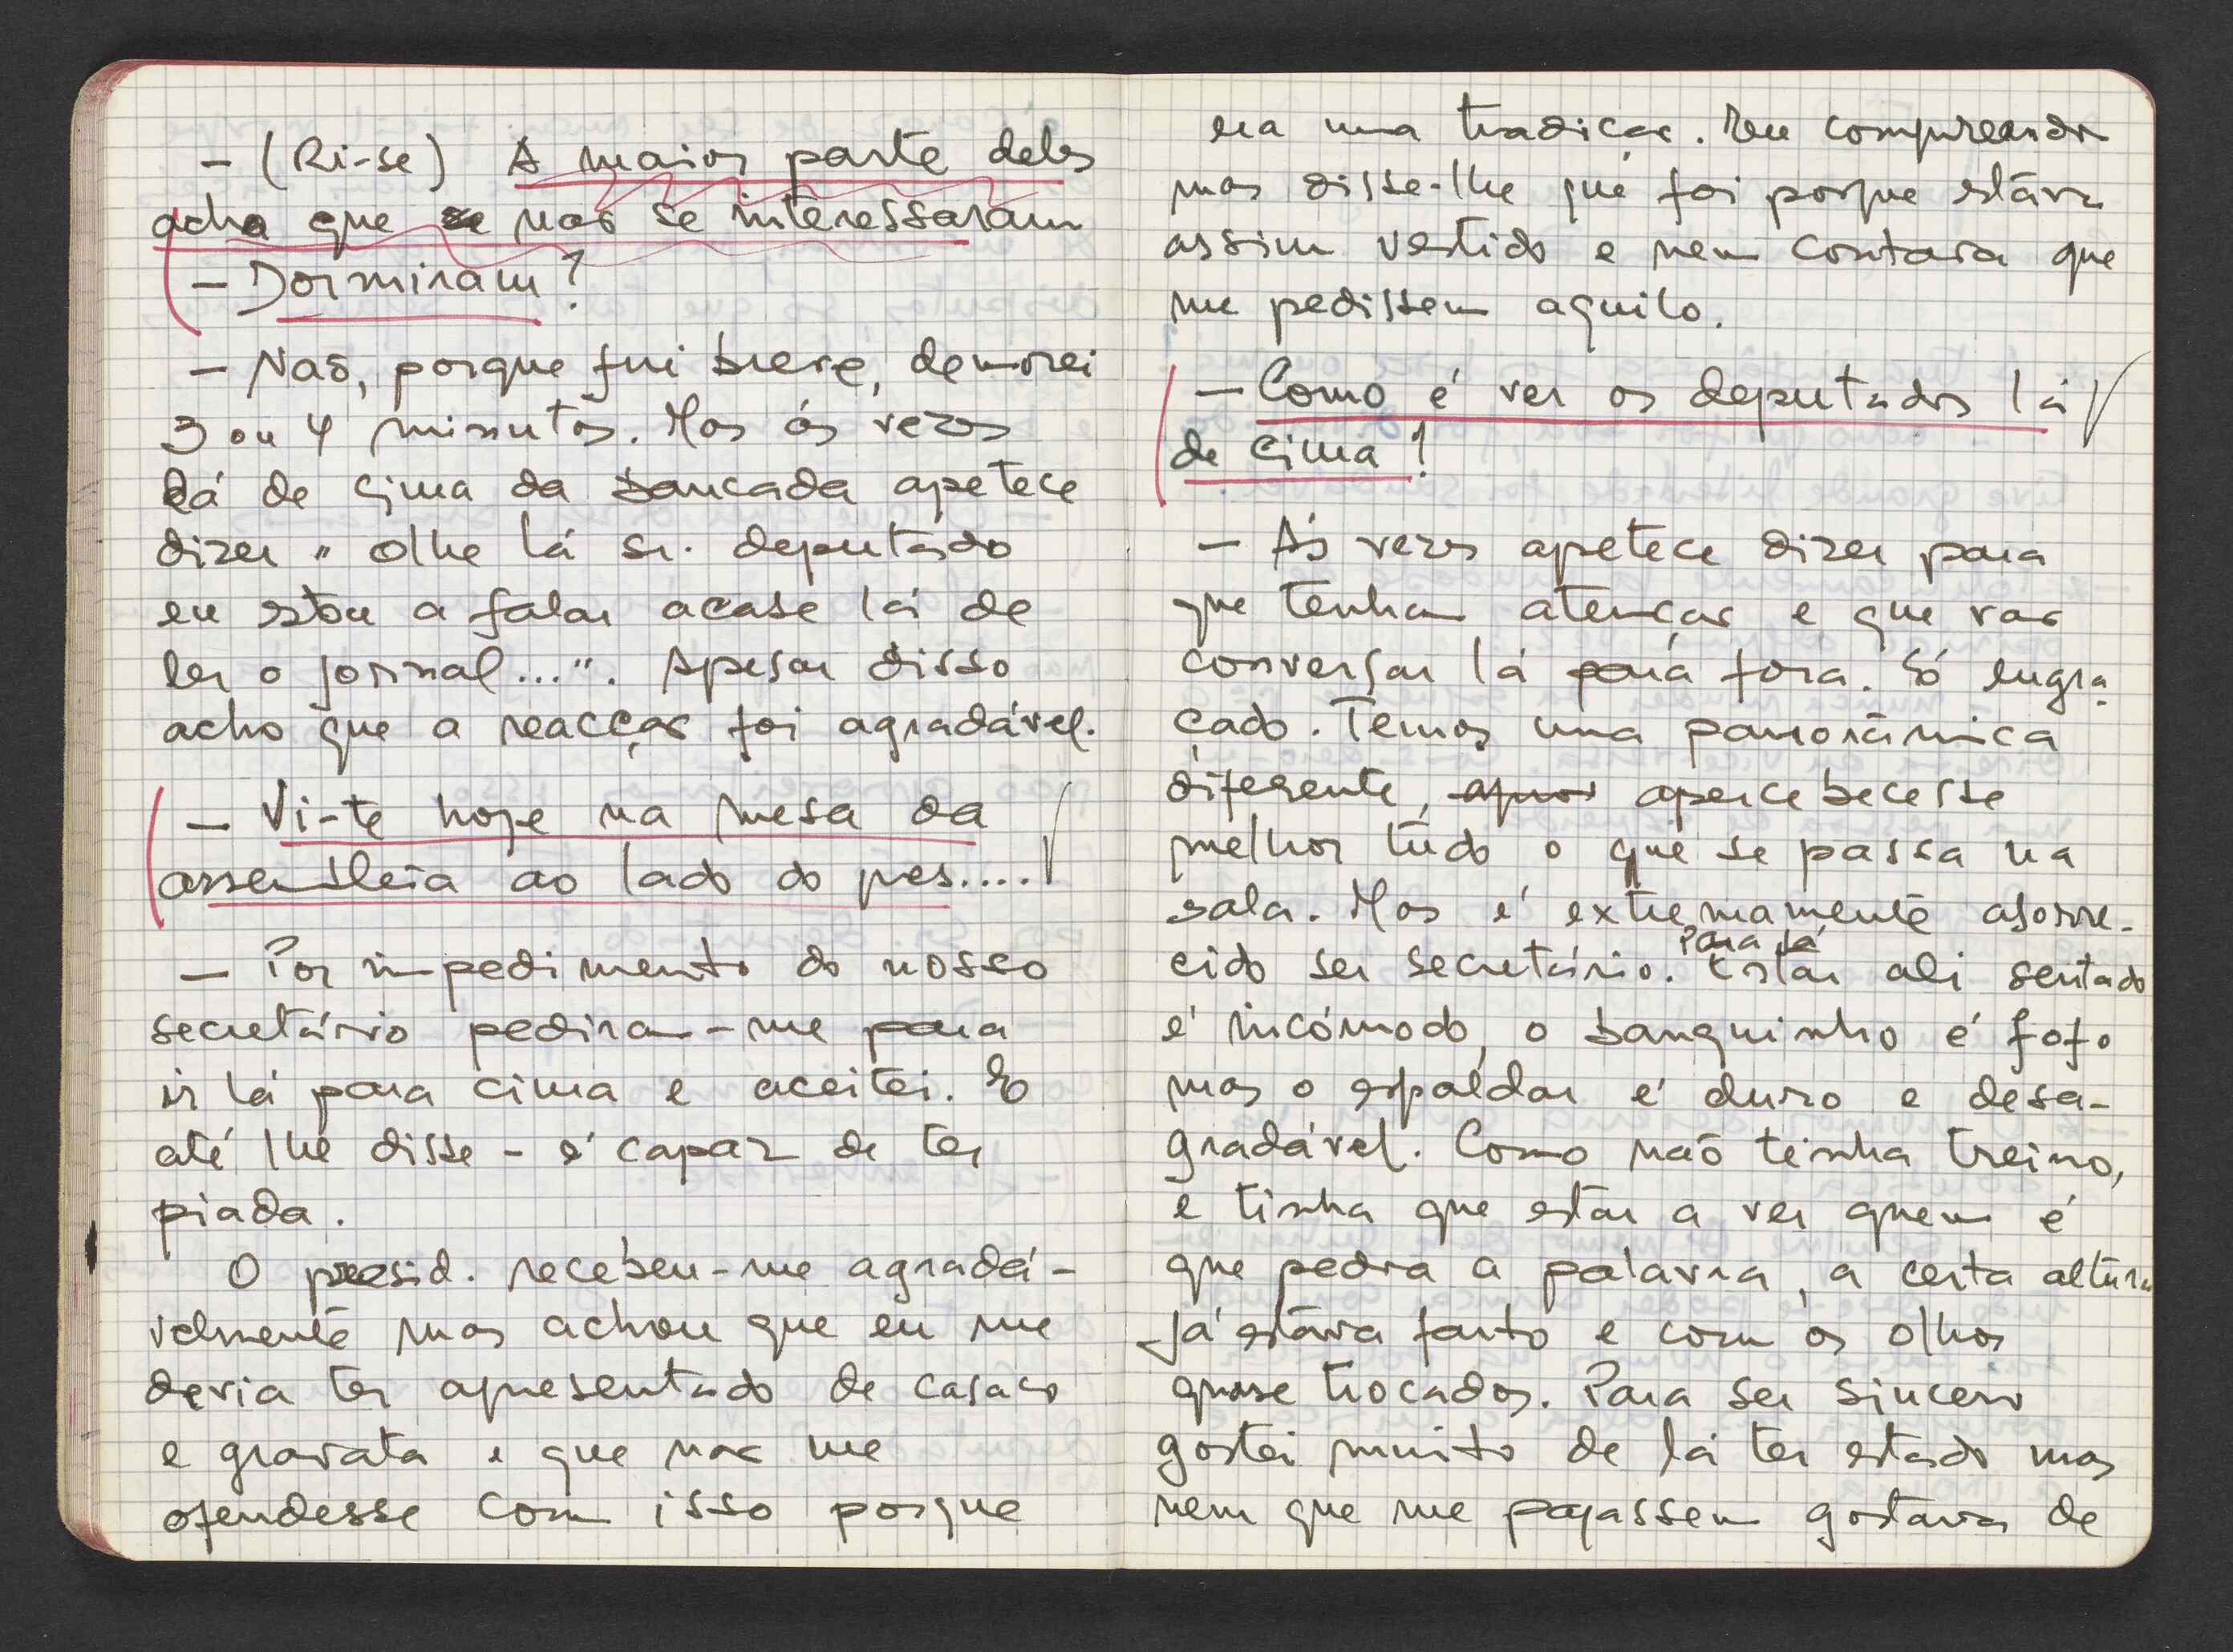 - (Ri-se) A maior parte deles
acha que se não se interessaram
- Dormiram?
- Não, porque fui breve, demorei
3 ou 4 minutos. Mas às vezes
lá de cima da bancada apetece
dizer " olhe lá sr. deputado
eu estou a falar acase lá de
ler o jornal...". Apesar disso
acho que a reacção foi agradável.
- Vi-te hoje na mesa da
assembleia ao lado do pres....
- Por impedimento do nosso
secretário pediram-me para
ir lá para cima e aceitei. E
até lhe disse - é capaz de ter
piada.
O presid. recebeu-me agradá-
velmente mas achou que eu me
devia ter apresentado de casaco
e gravata e que não me
ofendesse com isso porque
era uma tradição. Eu compreendo
mas disse-lhe que foi porque estava
assim vestido e nem contava que
me pedissem aquilo.
- Como é ver os deputados lá
de cima?
- Às vezes apetece dizer para
que tenham atenção e que vão
conversar lá para fora. É engra-
çado. Temos uma panorâmica
diferente, apercebecesse
melhor tudo o que se passa na
sala. Mas é extremamente aborre-
cido ser secretário. Para já
Estar ali sentado
é incómodo, o banquinho é fofo
mas o espaldar é duro e desa-
gradável. Como não tinha treino,
e tinha que estar a ver quem é
que pedia a palavra, a certa altura
já estava farto e com os olhos
quase trocados. Para ser sincero
gostei muito de lá ter estado mas
nem que me pagassem gostava de